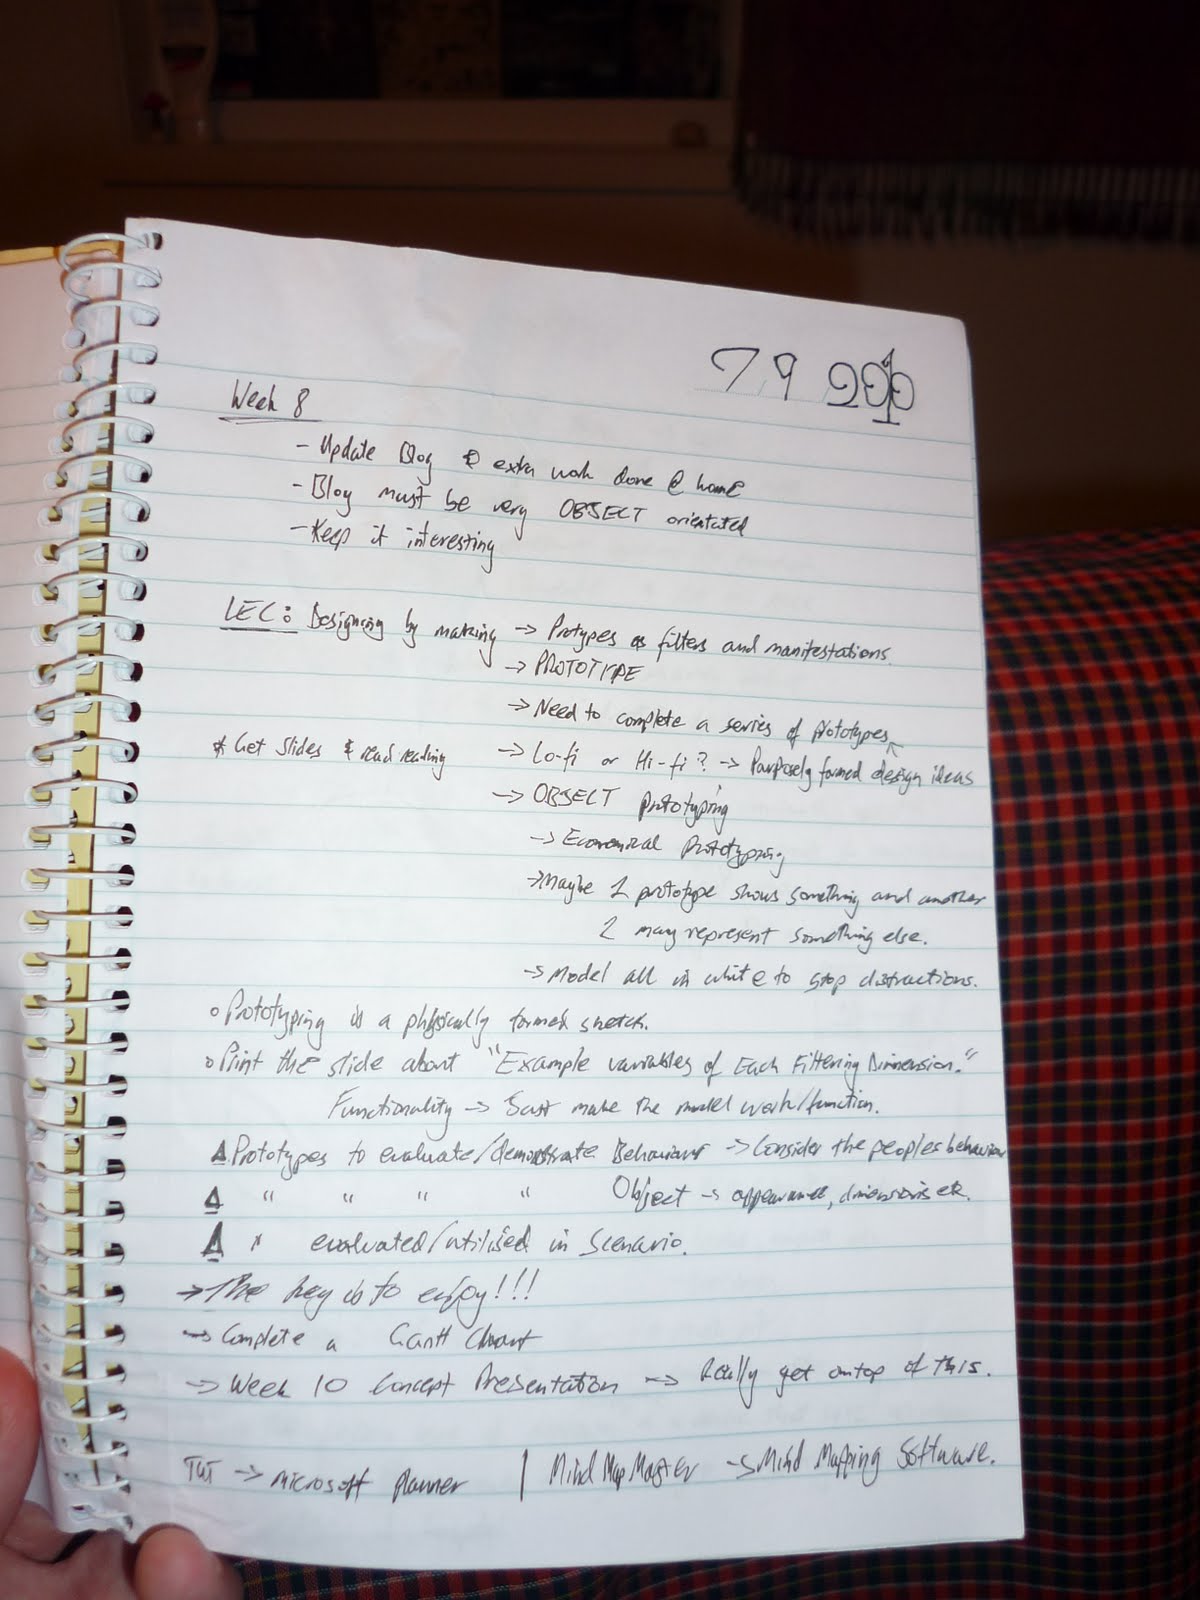 7 9
Week 8
- Update Blog & extra work done @ home
- Blog must be very OBJECT orientated
- Keep it interesting
LEC: Designing by making → Protypes as filters and manifestations
→ PROTOTYPE
→ Need to complete a series of prototypes
* Get slides & read reading → Lo-fi or Hi-fi? → Purposely formed design ideas
→ OBJECT prototyping
→ Economical Prototyping
→ Maybe 1 prototype shows something and another
2 may represent something else.
→ Model all in white to stop distractions.
o Prototyping is a physically formed sketch.
o Print the slide about "Example variables of Each Filtering Dimension."
Functionality → Just make the model work/function.
Δ Prototypes to evaluate/demonstrate Behaviour → Consider the peoples behaviour
Δ " " " " Object → appearance, dimensions etc.
Δ " evaluated/utilised in Scenario.
→ The key is to enjoy!!!
→ Complete a Gantt Chart
→ Week 10 Concept Presentation → Really get ontop of this.
TUT → microsoft planner | Mind Map Master → Mind Mapping Software.